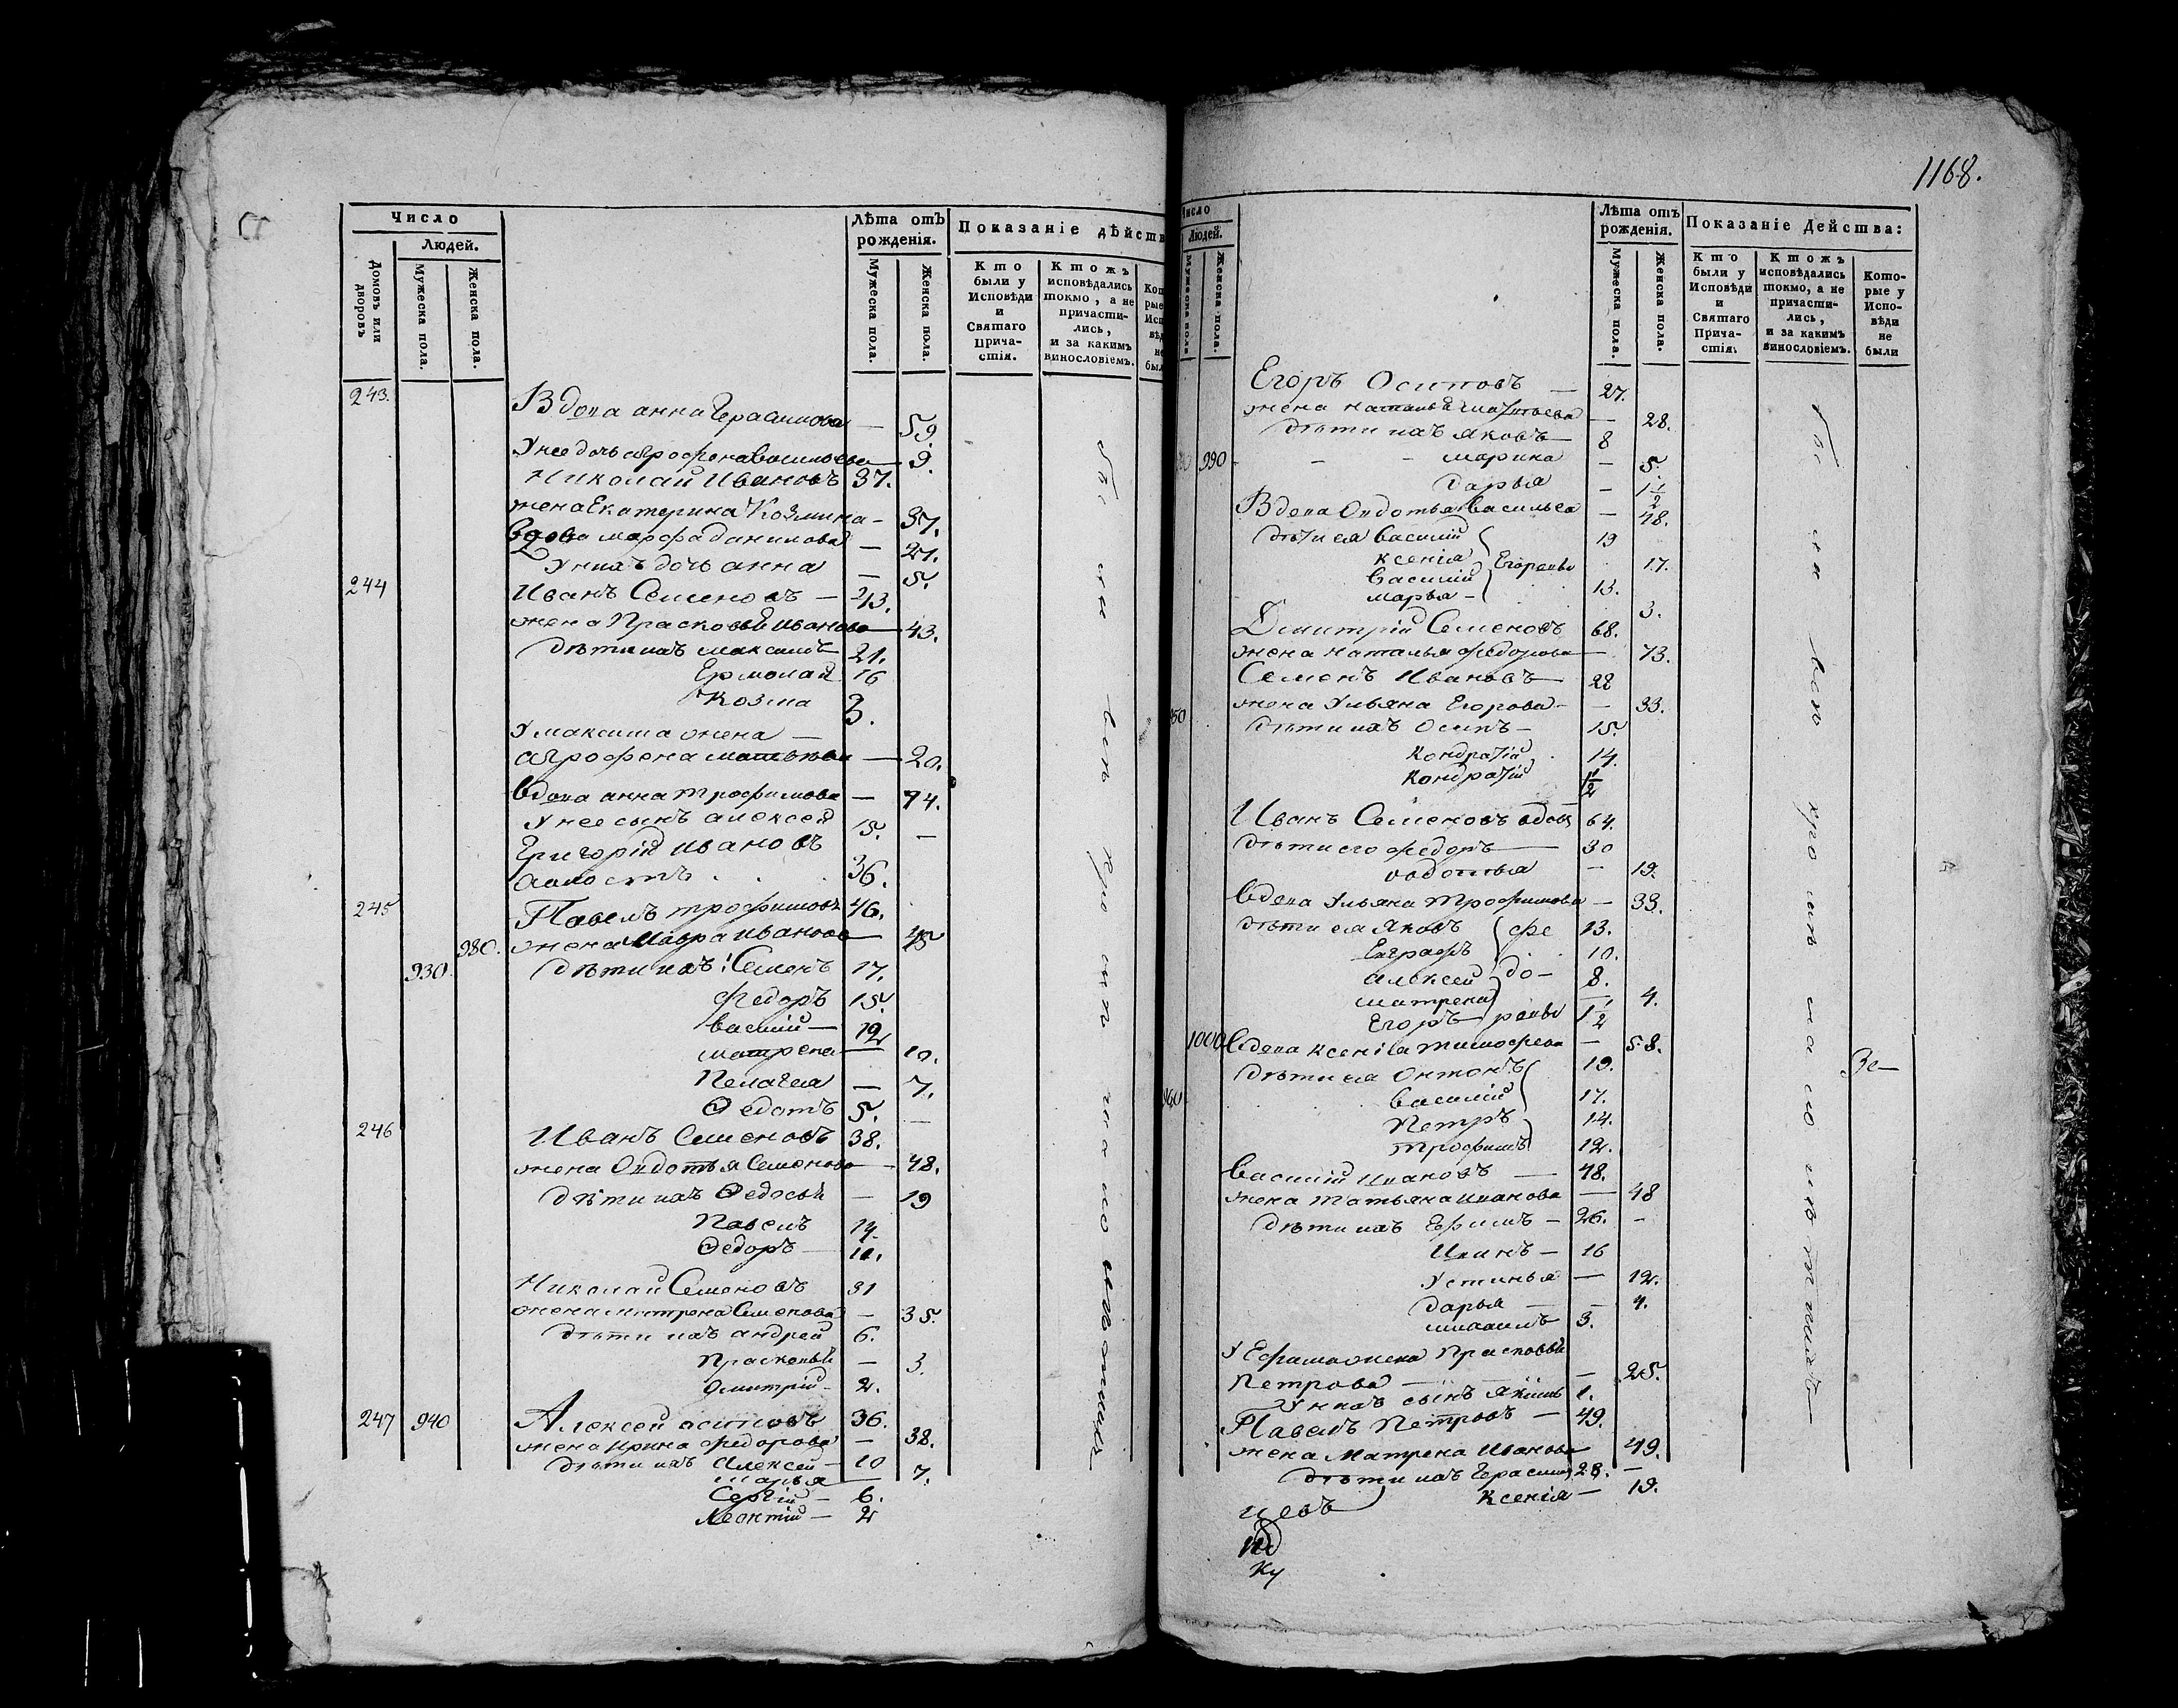 Число
Людей.
Домовъ или дворовъ
Мужеска пола.
Женска пола.
Лѣта отъ рожденія.
Мужеска пола.
Женска пола.
Показаніе дѣйств
Кто были у Исповѣди и Святаго Прича-стія.
Ктожъ исповѣдались токмо, а не причасти-лись, и за какимъ винословіемъ.
243. Вдова анна Герасимова — 59.
У нее дочь агрофена васильева — 9.
Николай Ивановъ 37.
жена Екатерина Козмина — 37.
вдова марфа данилова — 27.
У нихъ дочь анна — 5.
244 Иванъ Семеновъ — 43.
жена Прасковья Иванова — 43.
дѣти ихъ максимъ 21.
Ермолай 16
Козма 3.
У максима жена —
агрофена — 20.
вдова анна трофимова — 74.
У нее сынъ алексей 15. —
Григорій ивановъ
холостъ . . . 36.
245 Павелъ трофимовъ 46.
980. жена Мавра иванова 45
930. дѣти ихъ: Семенъ 17.
федоръ 15.
василій — 12
матрена — 10.
Пелагея — 7.
Ѳедотъ 5. —
246 Иванъ Семеновъ 38.
жена Овдотья Семенова — 48.
дѣти ихъ Ѳедосья — 19
Павелъ 14.
Ѳедоръ — 11.
Николай Семеновъ 31
жена матрена Семенова — 35.
дѣти ихъ андрей 6.
Прасковья — 3.
дмитрій — 2.
247 940 Алексей осиповъ 36.
жена ирина федорова — 38.
дѣти ихъ алексей — 10
марья — 7.
Сергій — 6.
Леонтій — 2
1168.
Число
Людей.
Мужеска пола
Женска пола.
Лѣта отъ рожденія.
Мужеска пола.
Женска пола.
Показаніе Действа:
Кто были у Исповѣди и Святаго Прича-стія.
Ктожъ исповѣдались токмо, а не причасти-лись, и за какимъ винословіемъ.
Кото-рые у Испо-вѣди не были
Егоръ Осиповъ — 27.
жена наталья — 28.
дѣти ихъ яковъ — 8
990 - - - марина — 5.
дарья — 1 1/2
Вдова Овдотья Васильева — 48.
дѣти ея василій 19
ксенія Егоровы 17.
василій 13.
марья — 3.
Дмитрій Семеновъ 68.
жена наталья федорова — 73.
Семенъ Ивановъ — 28
жена Ульяна Егорова — 33.
950
дѣти ихъ Осипъ — 15.
Кондратій 14.
Кондратій 1/2
Иванъ Семеновъ вдовъ 64.
дѣти его федоръ — 30
овдотья — 19.
вдова Ульяна Трофимова — 33.
дѣти ея яковъ фе 13.
Евграфъ 10.
алексей до — 8.
матрена — 4.
Егоръ ровы 1 1/2
1000. вдова ксенія тимофева — 58.
Зе—
дѣти ея Онтонъ 19.
960 василій 17.
Петръ 14.
трофимъ 12.
Василій ивановъ — 48.
жена татьяна иванова — 48
дѣти ихъ Ефимъ — 26. -
Иванъ — 16
Устинья — 12.
дарья — 4.
михаилъ 3.
У Ефима жена Прасковья
Петрова — 25.
У нихъ сынъ якимъ 1.
Павелъ Петровъ — 49.
жена Матрена Иванова 49.
дѣти ихъ Герасимъ 28. —
ксенія — 19.
цевъ
ку